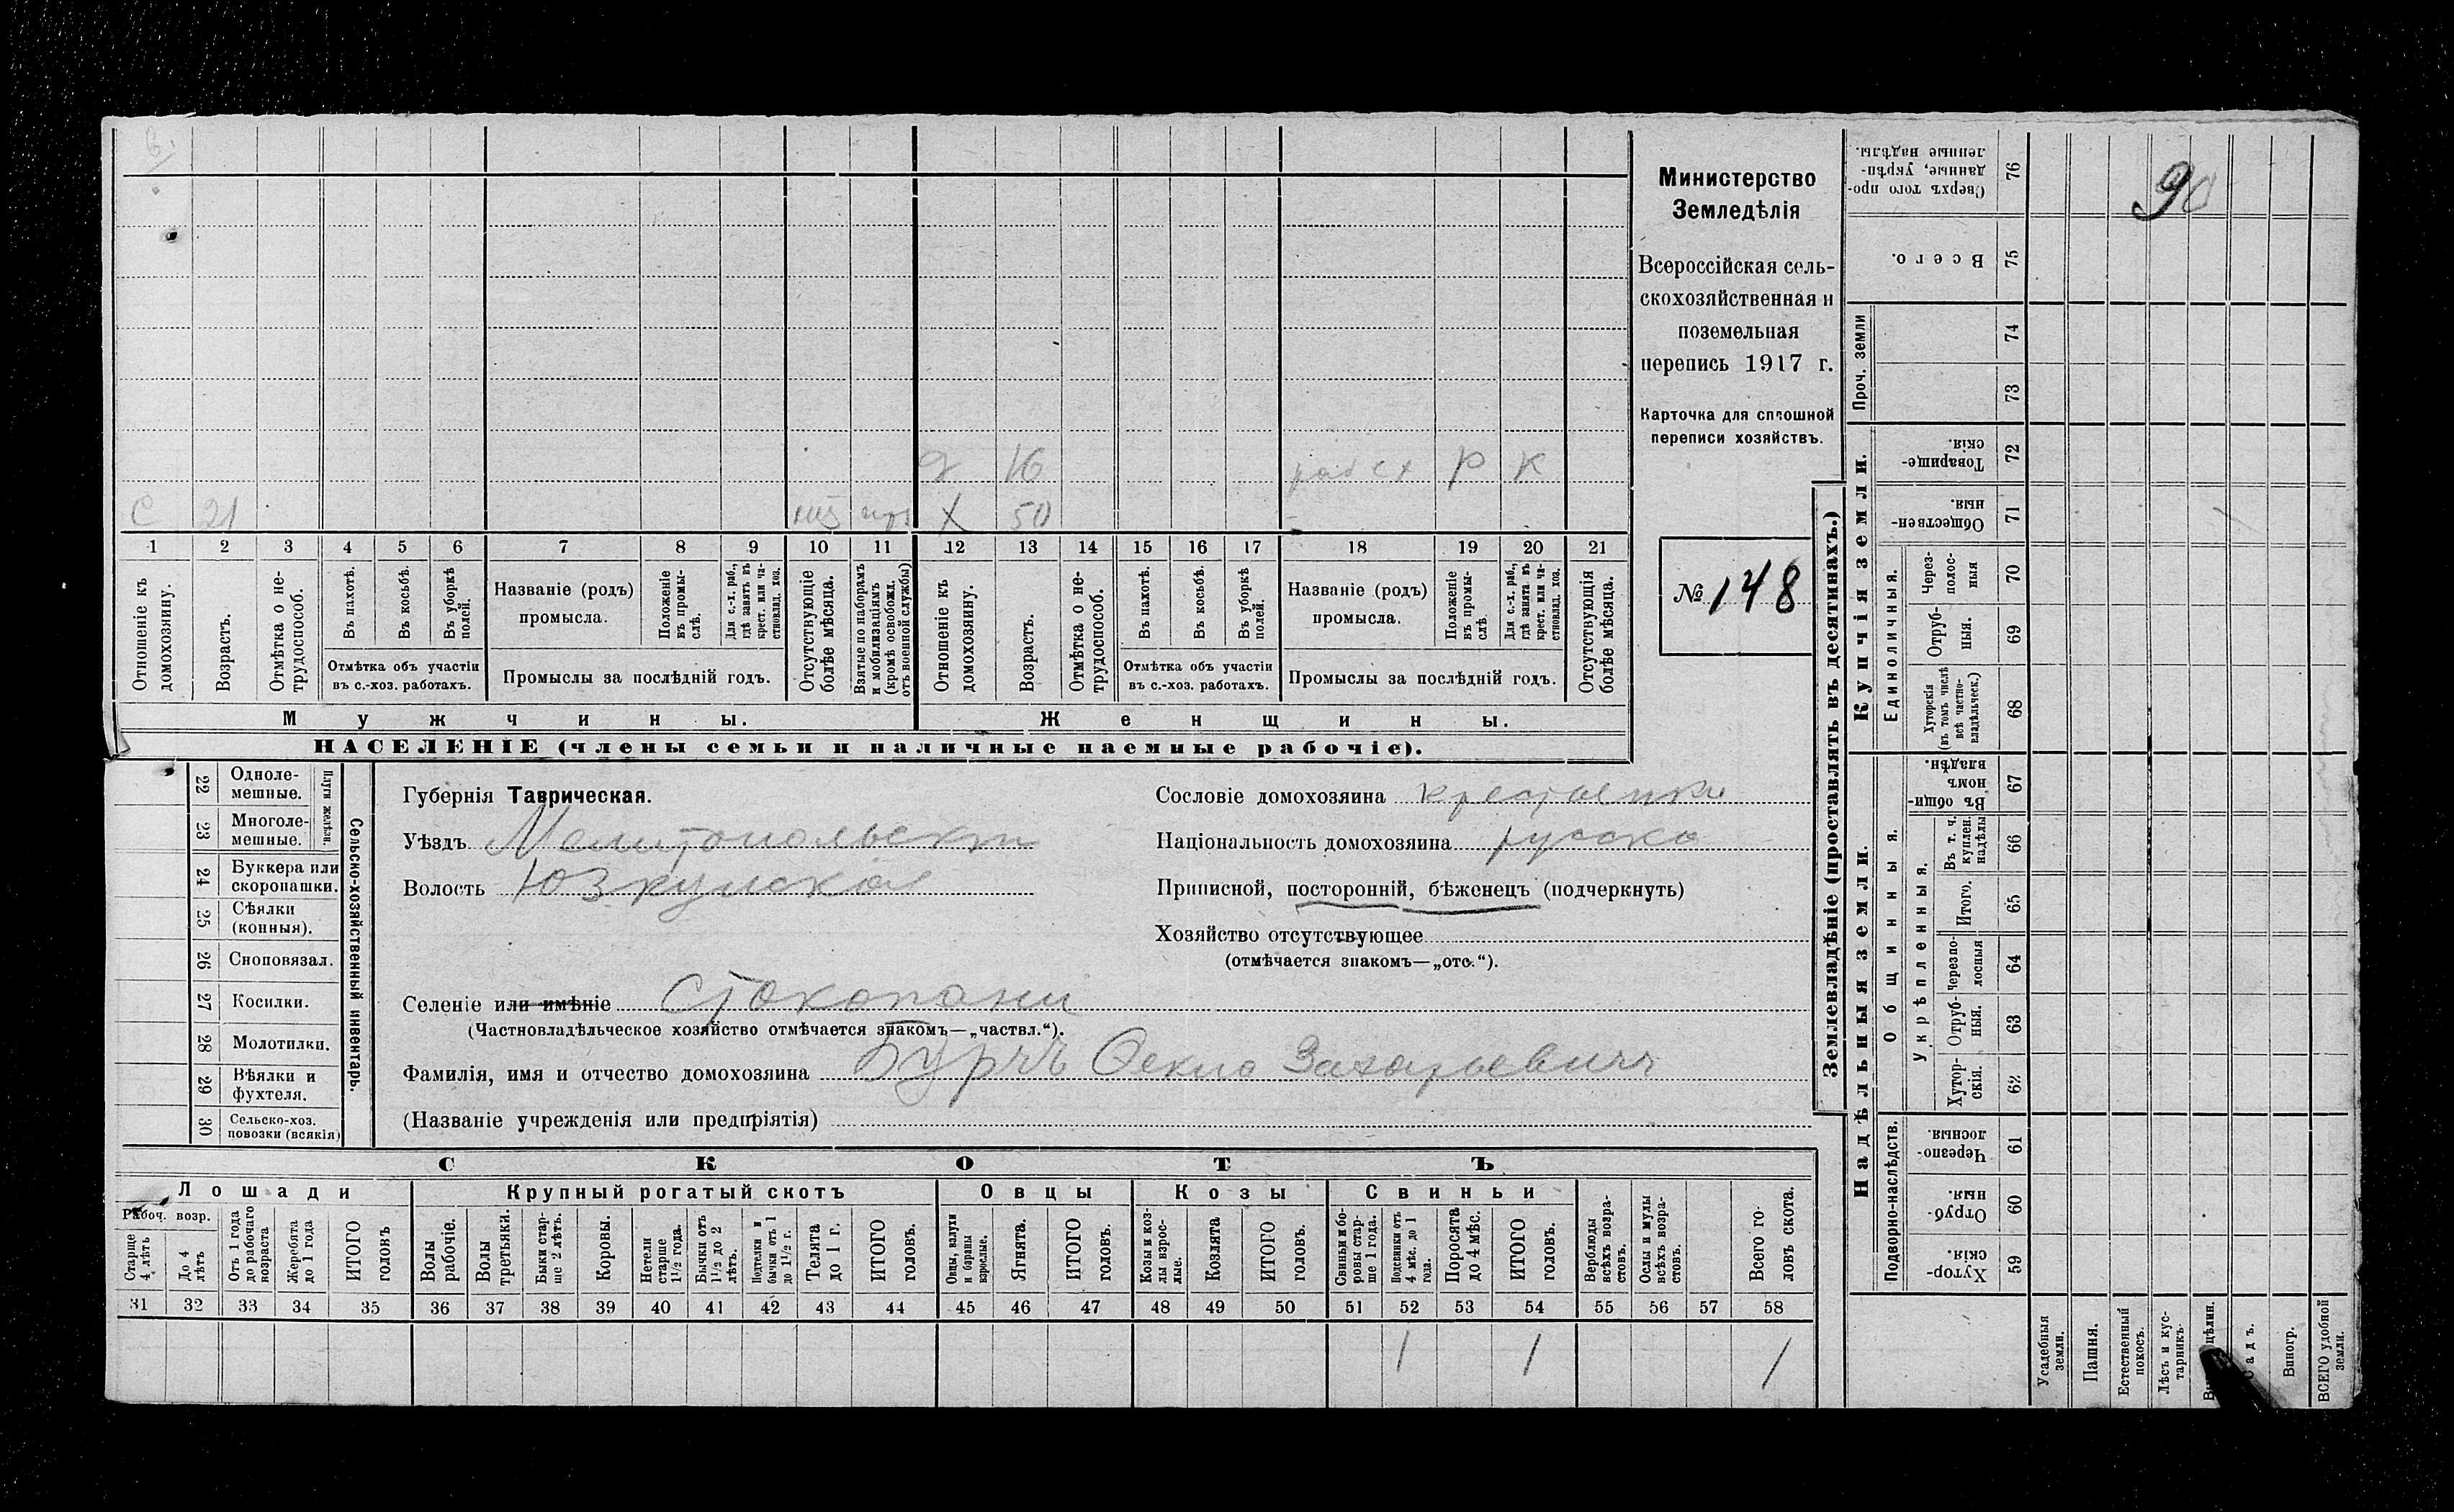 6.
д 16 раб сх Р К
С 21 Х 50
1 2 3 4 5 6 7 8 9 10 11 12 13 14 15 16 17 18 19 20 21
Отношеніе къ домохозяину.
Возрастъ.
Отмѣтка о не-трудоспособ.
Въ пахотѣ.
Въ косьбѣ.
Въ уборкѣ полей.
Отмѣтка объ участіи
въ с.-хоз. работахъ.
Названіе (родъ)
промысла.
Положеніе въ промы-слѣ.
Для с.-х. раб., гдѣ занятъ въ крест. или ча-стновлад. хоз.
Промыслы за послѣдній годъ.
Отсутствующіе болѣе мѣсяца.
Взятые по наборамъ и мобилизаціямъ (кромѣ освобожд. отъ военной службы)
Отношеніе къ домохозяину.
Возрастъ.
Отмѣтка о не-трудоспособ.
Въ пахотѣ.
Въ косьбѣ.
Въ уборкѣ полей.
Отмѣтка объ участіи
въ с.-хоз. работахъ.
Названіе (родъ)
промысла.
Положеніе въ промы-слѣ.
Для с.-х. раб., гдѣ занята въ крест. или ча-стновлад. хоз.
Промыслы за послѣдній годъ.
Отсутствующія болѣе мѣсяца.
Мужчины. Женщины.
НАСЕЛЕНІЕ (члены семьи и наличные наемные рабочіе).
Министерство
Земледѣлія
Всероссійская сель-
скохозяйственная и
поземельная
перепись 1917 г.
Карточка для сплошной
переписи хозяйствъ.
№ 148
22 Одноле-мешные.
23 Многоле-мешные.
Плуги желѣзн.
24 Буккера или скоропашки.
25 Сѣялки (конныя).
26 Сноповязал.
27 Косилки.
28 Молотилки.
29 Вѣялки и фухтеля.
30 Сельско-хоз. повозки (всякія)
Сельско-хозяйственный инвентарь.
Губернія Таврическая.
Уѣздъ Мелитопольскт
Волость Юзкуйская
Сословіе домохозяина крестьянка
Національность домохозяина русска
Приписной, посторонній, бѣженецъ (подчеркнуть)
Хозяйство отсутствующее
(отмѣчается знакомъ—„отс.“).
Селеніе или имѣніе Стокопани
(Частновладѣльческое хозяйство отмѣчается знакомъ—„частвл.“).
Фамилія, имя и отчество домохозяина Захарьевичъ
(Названіе учрежденія или предпріятія)
СКОТЪ
Лошади Крупный рогатый скотъ Овцы Козы Свиньи
Рабоч. возр.
Старше 4 лѣтъ
До 4 лѣтъ
Отъ 1 года до рабочаго возраста
Жеребята до 1 года
ИТОГО головъ
Волы рабочіе.
Волы третьяки.
Быки стар-ше 2 лѣтъ.
Коровы.
Нетели старше 1 1/2 года.
Бычки отъ 1 1/2 до 2 лѣтъ.
Подтелки и бычки отъ 1 до 1 1/2 г.
Телята до 1 г.
ИТОГО головъ.
Овцы, валухи и бараны взрослые.
Ягнята.
ИТОГО головъ.
Козы и коз-лы взрос-лые.
Козлята
ИТОГО головъ.
Свиньи и бо-ровы стар-ше 1 года.
Подсвинки отъ 4 мѣс. до 1 года.
Поросята до 4 мѣс.
ИТОГО головъ.
Верблюды всѣхъ возра-стовъ.
Ослы и мулы всѣхъ возра-стовъ.
Всего го-ловъ скота.
31 32 33 34 35 36 37 38 39 40 41 42 43 44 45 46 47 48 49 50 51 52 53 54 55 56 57 58
1 1 1
Землевладѣніе (проставлять въ десятинахъ.)
90
Сверхъ того про-данные, укрѣп-ленные надѣлы. 76
Всего. 75
74
73
Проч. земли
Товарище-скія. 72
Обществен-ныя. 71
Через-полос-ныя 70
Отруб-ныя. 69
Хуторскія (въ томъ числѣ всѣ частно-владѣльческ.) 68
Единоличныя.
Купчія земли.
Въ общи-номъ владѣн. 67
Въ т. ч. куплен. надѣлы 66
Итого. 65
Черезпо-лосныя 64
Отруб-ныя. 63
Хутор-скія. 62
Укрѣпленныя.
Общинныя.
Черезпо-лосныя. 61
Отруб-ныя. 60
Хутор-скія. 59
Подворно-наслѣдств.
Надѣльныя земли.
Усадебныя земли.
Пашня.
Естественный покосъ.
Лѣсъ и кус-тарникъ
Виногр.
ВСЕГО удобной земли.